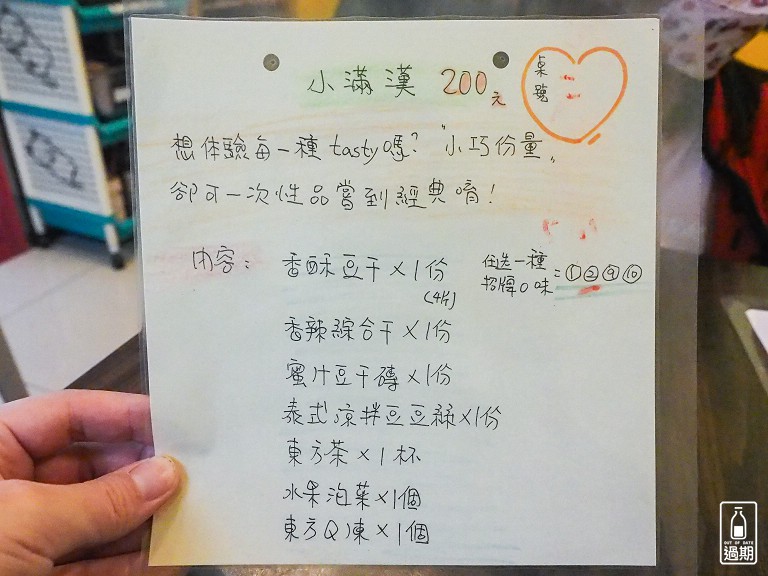 小滿漢 200元
桌號
想体驗每一種tasty嗎?"小巧份量"
卻可一次性品嘗到經典唷!
內容: 香酥豆干×1份
(4片)
任选一種
招牌口味=①②⑨⑩
香辣綜合干×1份
蜜汁豆干磚×1份
泰式涼拌豆豆絲×1份
東方茶×1杯
水果泡菜×1個
東方Q凍×1個
OUT OF DATE
過期